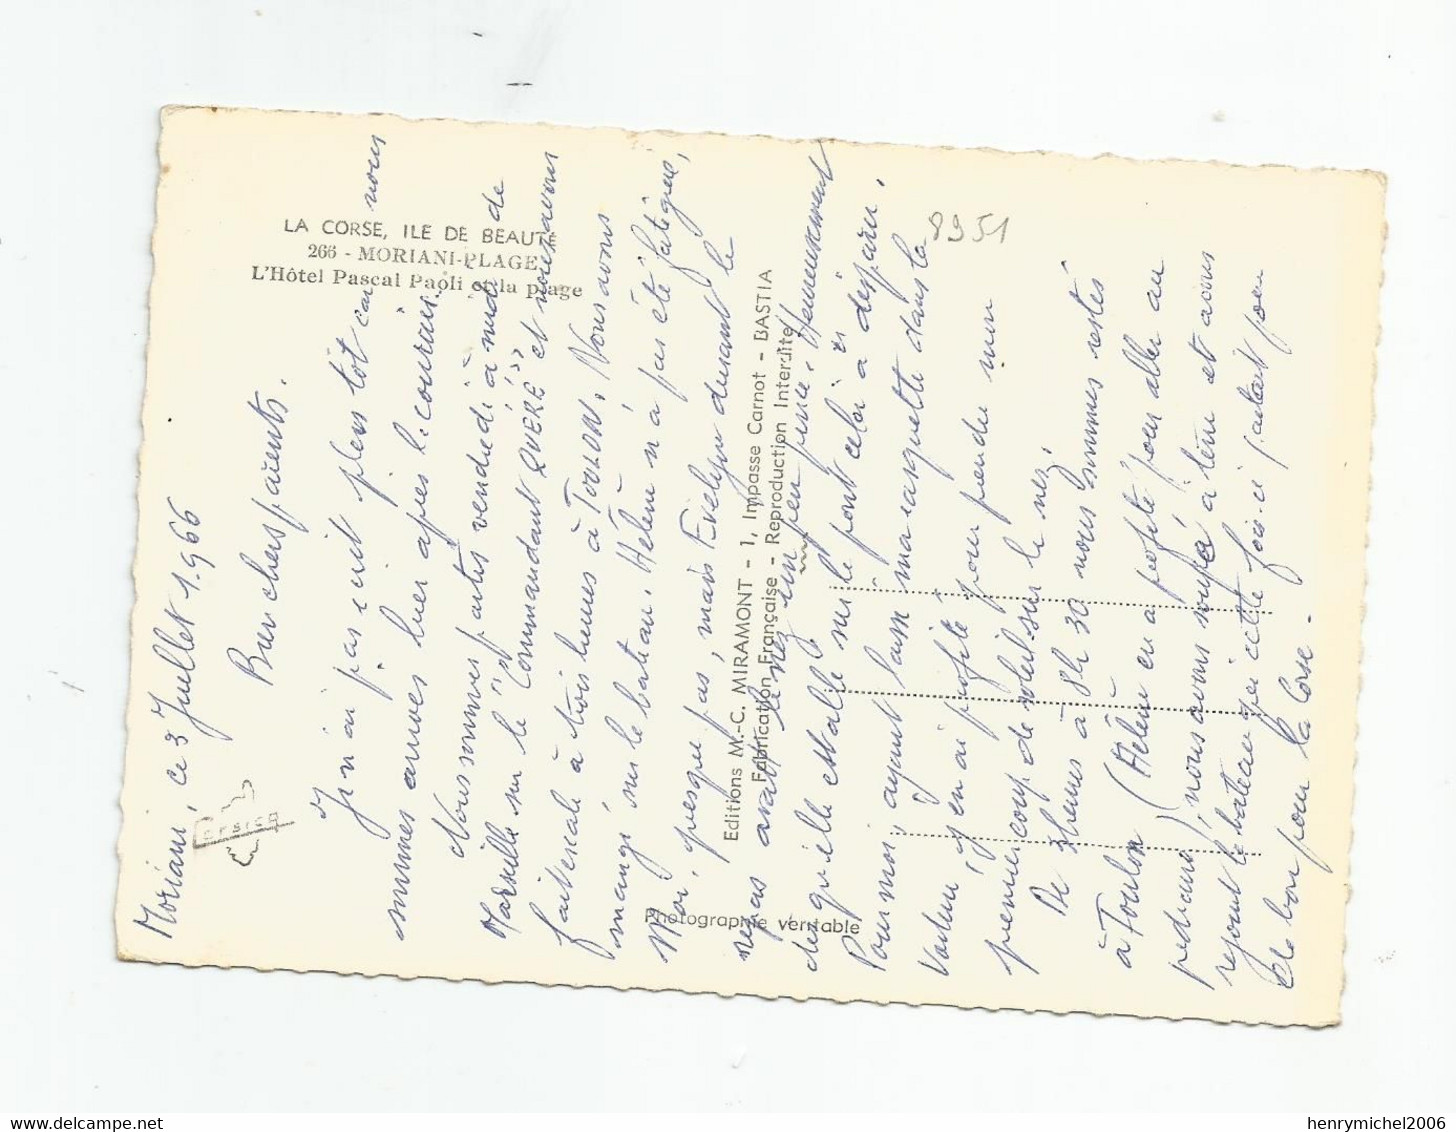 LA CORSE, ILE DE BEAUTE
266 - MORIANI-PLAGE
L'Hôtel Pascal Paoli et la plage
8951
Editions M.-C. MIRAMONT - 1, Impasse Carnot - BASTIA
Fabrication Française - Reproduction Interdite
Photographie véritable
CORSICA
Moriani, ce 3 Juillet 1.966
Bien chers parents.
Je n'ai pas écrit plus tôt car nous
sommes arrivés hier après le courrier.
Nous sommes partis vendredi à midi de
Marseille sur le "Commandant QUÉRÉ" et nous avons
fait escale à trois heures à TOULON. Nous avons
mangé sur le bateau. Hélène n'a pas été fatiguée,
Moi, presque pas, mais Evelyne durant le
repas avait le nez un peu pincé. Heureusement
qu'elle est allée sur le pont celui-ci a disparu.
Pour moi ayant laissé ma casquette dans la
voiture j'en ai profité pour prendre mon
premier coup de soleil sur le nez.
De 3 heures à 8h 30 nous sommes restés
à Toulon (Hélène en a profité pour aller au
), nous avons soupé à terre et avons
rejoint le bateau qui cette fois-ci partait pour
de bon pour la Corse.
henrymichel2006